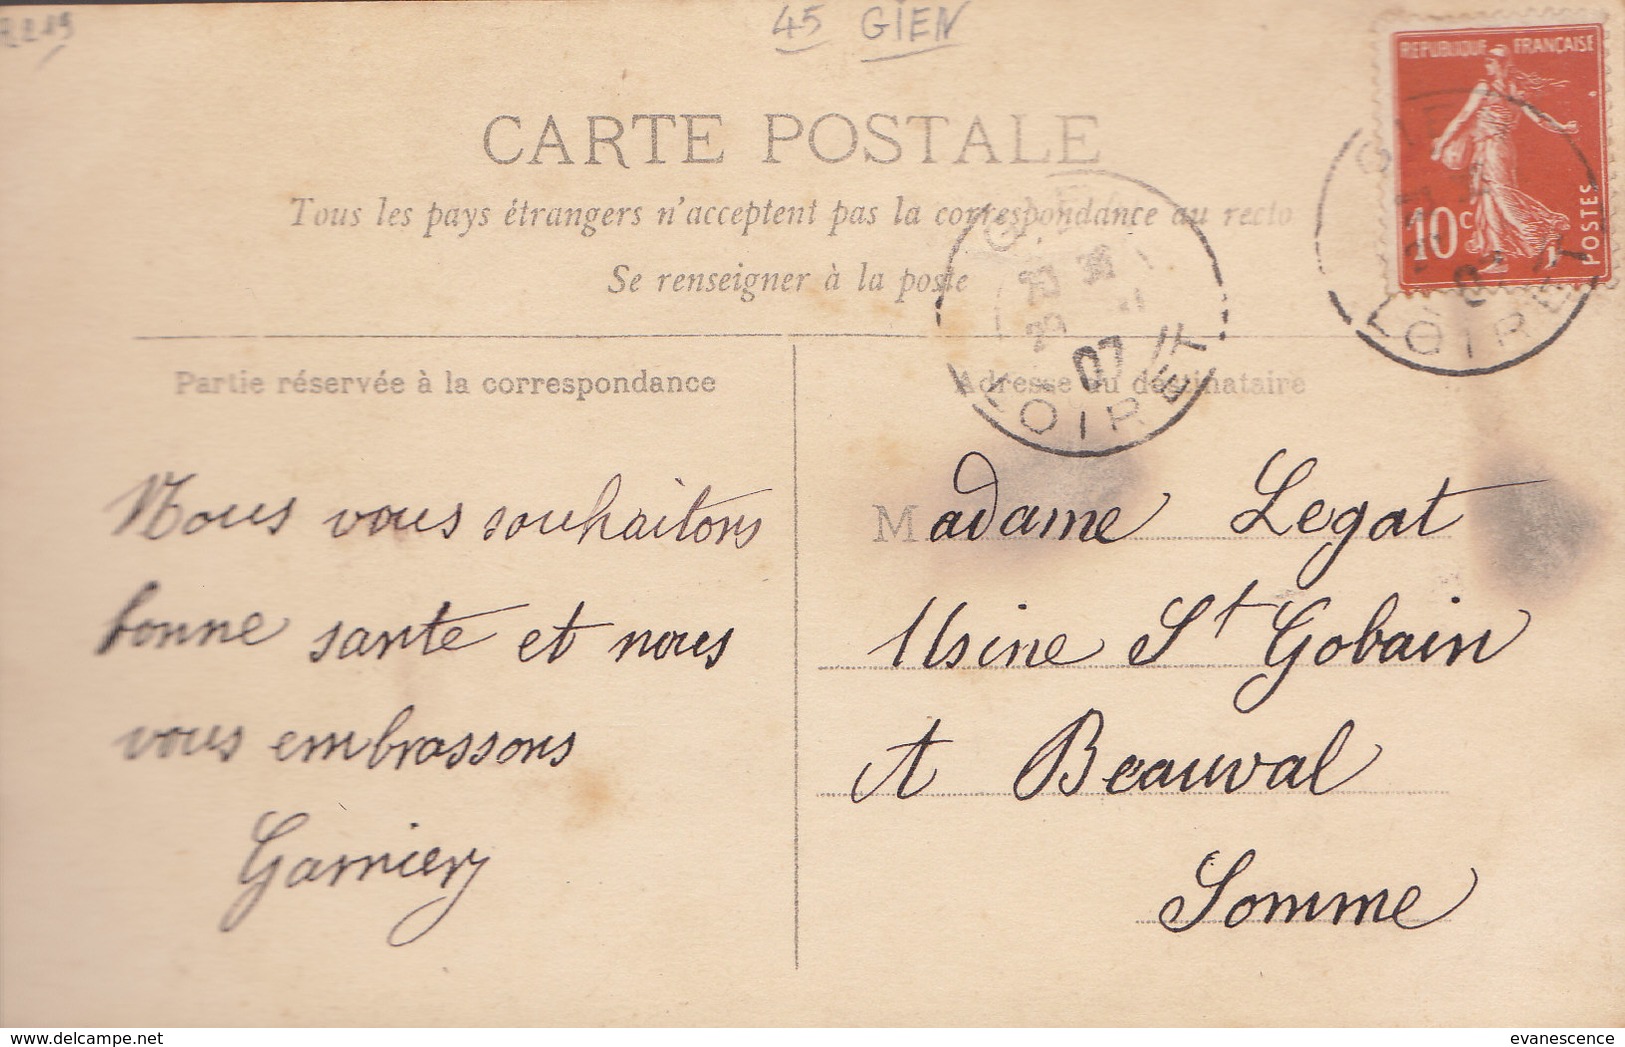 45 GIEN
CARTE POSTALE
Tous les pays étrangers n'acceptent pas la correspondance au recto
Se renseigner à la poste
REPUBLIQUE FRANÇAISE
10c
POSTES
GIEN
07
LOIRET
GIEN
07
LOIRET
Partie réservée à la correspondance
Adresse du destinataire
Nous vous souhaitons
bonne sante et nous
vous embrassons
Garnier
Madame Legat
Usine St Gobain
A Beauval
Somme
www.delcampe.net
evanescence